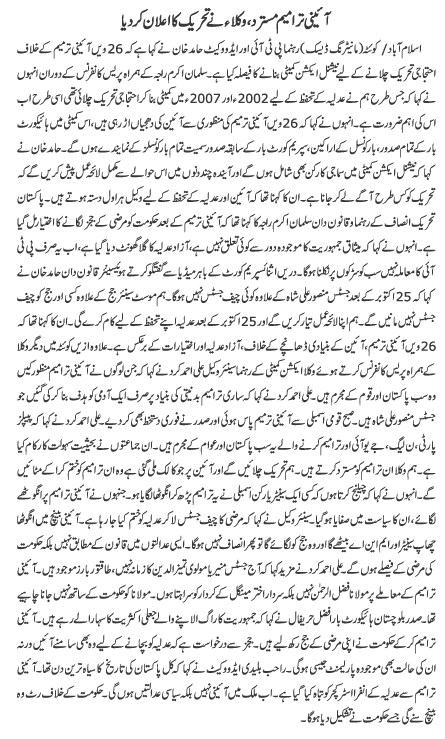 آئینی ترامیم مسترد، وکلاء نے تحریک کا اعلان کر دیا
اسلام آباد/ کوئٹہ (مانیٹرنگ ڈیسک) رہنما پی ٹی آئی اور ایڈووکیٹ حامد خان نے کہا ہے کہ 26 ویں آئینی ترمیم کے خلاف
احتجاجی تحریک چلانے کے لیے نیشنل ایکشن کمیٹی بنانے کا فیصلہ کیا ہے۔ سلمان اکرم راجہ کے ہمراہ پریس کانفرنس کے دوران انہوں
نے کہا کہ جس طرح ہم نے عدلیہ کے تحفظ کے لیے 2002ء اور 2007ء میں کمیٹی بنا کر احتجاجی تحریک چلائی تھی اسی طرح اب
اس کی اہم ضرورت ہے۔ انہوں نے کہا کہ 26 ویں آئینی ترمیم کی منظوری سے آئین کی دھجیاں اڑ رہی ہیں، اس کمیٹی میں ہائیکورٹ
بار کے تمام صدور، بار کونسل کے اراکین، سپریم کورٹ بار کے سابقہ صدور سمیت تمام بار کونسلز کے نمائندے ہوں گے۔ حامد خان نے
کہا کہ نیشنل ایکشن کمیٹی میں سماجی کارکن بھی شامل ہوں گے اور آئندہ چند دنوں میں اس حوالے سے مکمل لائحہ عمل پیش کریں گے کہ
تحریک کو کس طرح آگے لے کر جانا ہے۔ ان کا کہنا تھا کہ آئین اور عدلیہ کے تحفظ کے لیے وکیل ہر اول دستہ ہوتے ہیں۔ پاکستان
تحریک انصاف کے رہنما و قانون دان سلمان اکرم راجہ کا کہنا تھا کہ آئینی ترمیم کے بعد حکومت کو مرضی کے ججز لگانے کا اختیار مل گیا
ہے۔ انہوں نے کہا کہ میثاق جمہوریت کا موجودہ دور سے کوئی تعلق نہیں ہے، آزاد عدلیہ کا گلا گھونٹ دیا گیا ہے، اب یہ صرف پی ٹی
آئی کا معاملہ نہیں سب کو سڑکوں پر نکلنا ہوگا۔ دریں اثنا سپریم کورٹ کے باہر میڈیا سے گفتگو کرتے ہوئے سینئر قانون دان حامد خان نے
کہا کہ 25 اکتوبر کے بعد جسٹس منصور علی شاہ کے علاوہ کوئی چیف جسٹس نہیں ہوگا۔ ہم موسٹ سینئر جج کے علاوہ کسی اور جج کو چیف
جسٹس نہیں مانیں گے۔ ہم اپنا لائحہ عمل تیار کریں گے اور 25 اکتوبر کے بعد عدلیہ اپنے تحفظ کے لیے کام کرے گی۔ ان کا کہنا تھا کہ
26 ویں آئینی ترمیم، آئین کے بنیادی ڈھانچے کے خلاف، آزاد عدلیہ اور اختیارات کے برعکس ہے۔ علاوہ ازیں کوئٹہ میں دیگر وکلا
کے ہمراہ پریس کانفرنس کرتے ہوئے وکلا ایکشن کمیٹی کے رہنما سینئر وکیل علی احمد کرد نے کہا کہ جن لوگوں نے آئینی ترامیم منظور کیں
وہ سب پاکستان اور قوم کے مجرم ہیں۔ علی احمد کرد نے کہا کہ ساری ترامیم بدنیتی کی بنیاد پر صرف ایک آدمی کو ہدف بنا کر کی گئیں جو
جسٹس منصور علی شاہ ہیں۔ صبح قومی اسمبلی سے آئینی ترمیم پاس ہوئی اور صدر نے فوری دستخط بھی کر دیے۔ علی احمد کرد نے کہا کہ پیپلز
پارٹی، ن لیگ، جے یو آئی اور ترامیم کرنے والے یہ سب پاکستان اور عوام کے مجرم ہیں۔ ان جماعتوں نے بحیثیت سہولت کار کام کیا
ہے۔ ہم وکلا ان ترامیم کو مسترد کرتے ہیں۔ ہم تحریک چلائیں گے اور آئین پر جو کالک ملی گئی ہے وہ ان ترامیم کو ختم کرا کے مٹائیں
گے۔ انہوں نے کہا کہ چیلنج کرتا ہوں کہ کسی ایک سینیٹر یا رکن اسمبلی نے یہ ترامیم پڑھ کر انگوٹھا لگایا ہو۔ جنہوں نے آئینی ترامیم پر انگوٹھے
لگائے، ان کا سیاست میں صفایا ہو گیا۔ سینئر وکیل نے کہا کہ مرضی کا چیف جسٹس لا کر عدلیہ کو ختم کیا جا رہا ہے۔ آئینی بینچ میں انگوٹھا
چھاپ سینیٹر اور ایم این اے بیٹھے گا اور وہ جج کو لگائے گا تو پھر انصاف نہیں ہوگا۔ ایسی عدالتوں میں قانون کے مطابق نہیں بلکہ حکومت
کی مرضی کے فیصلے ہوں گے۔ علی احمد کرد نے مزید کہا کہ آج جسٹس منیر یا مولوی تمیز الدین کا زمانہ نہیں، طاقتور بار موجود ہیں۔ آئینی
ترامیم کے معاملے پر مولانا فضل الرحمٰن نہیں بلکہ سردار اختر مینگل کے کردار کو سراہتا ہوں۔ مولانا کو حکومت کے ساتھ نہیں جانا چاہیے
تھا۔ صدر بلوچستان ہائیکورٹ بار افضل حریفال نے کہا کہ جمہوریت کا راگ الاپنے والے جعلی اکثریت کا سہارا لے رہے ہیں۔ آئینی
ترامیم کر کے حکومت نے اپنی مرضی کے جج رکھ لیے ہیں۔ ججز سے درخواست ہے کہ عدلیہ کو بچانے کے لیے وہ بھی سامنے آئیں ورنہ
ان کی حالت بھی موجودہ پارلیمنٹ جیسی ہوگی۔ راحب بلیدی ایڈووکیٹ نے کہا کہ کل پاکستان کی تاریخ کا سیاہ ترین دن تھا۔ آئینی
ترامیم سے عدلیہ کے انفرا اسٹرکچر کو تباہ کیا گیا ہے۔ اب ملک میں آئینی نہیں بلکہ سیاسی عدالتیں ہوں گی۔ حکومت کے خلاف رٹ وہ
بینچ سنے گی جسے حکومت نے تشکیل دیا ہوگا۔